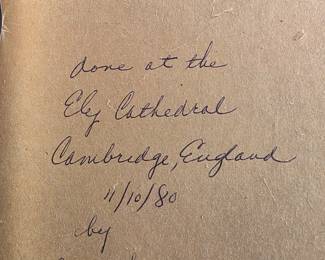 done at the
Ely Cathedral
Cambridge, England
11/10/80
by